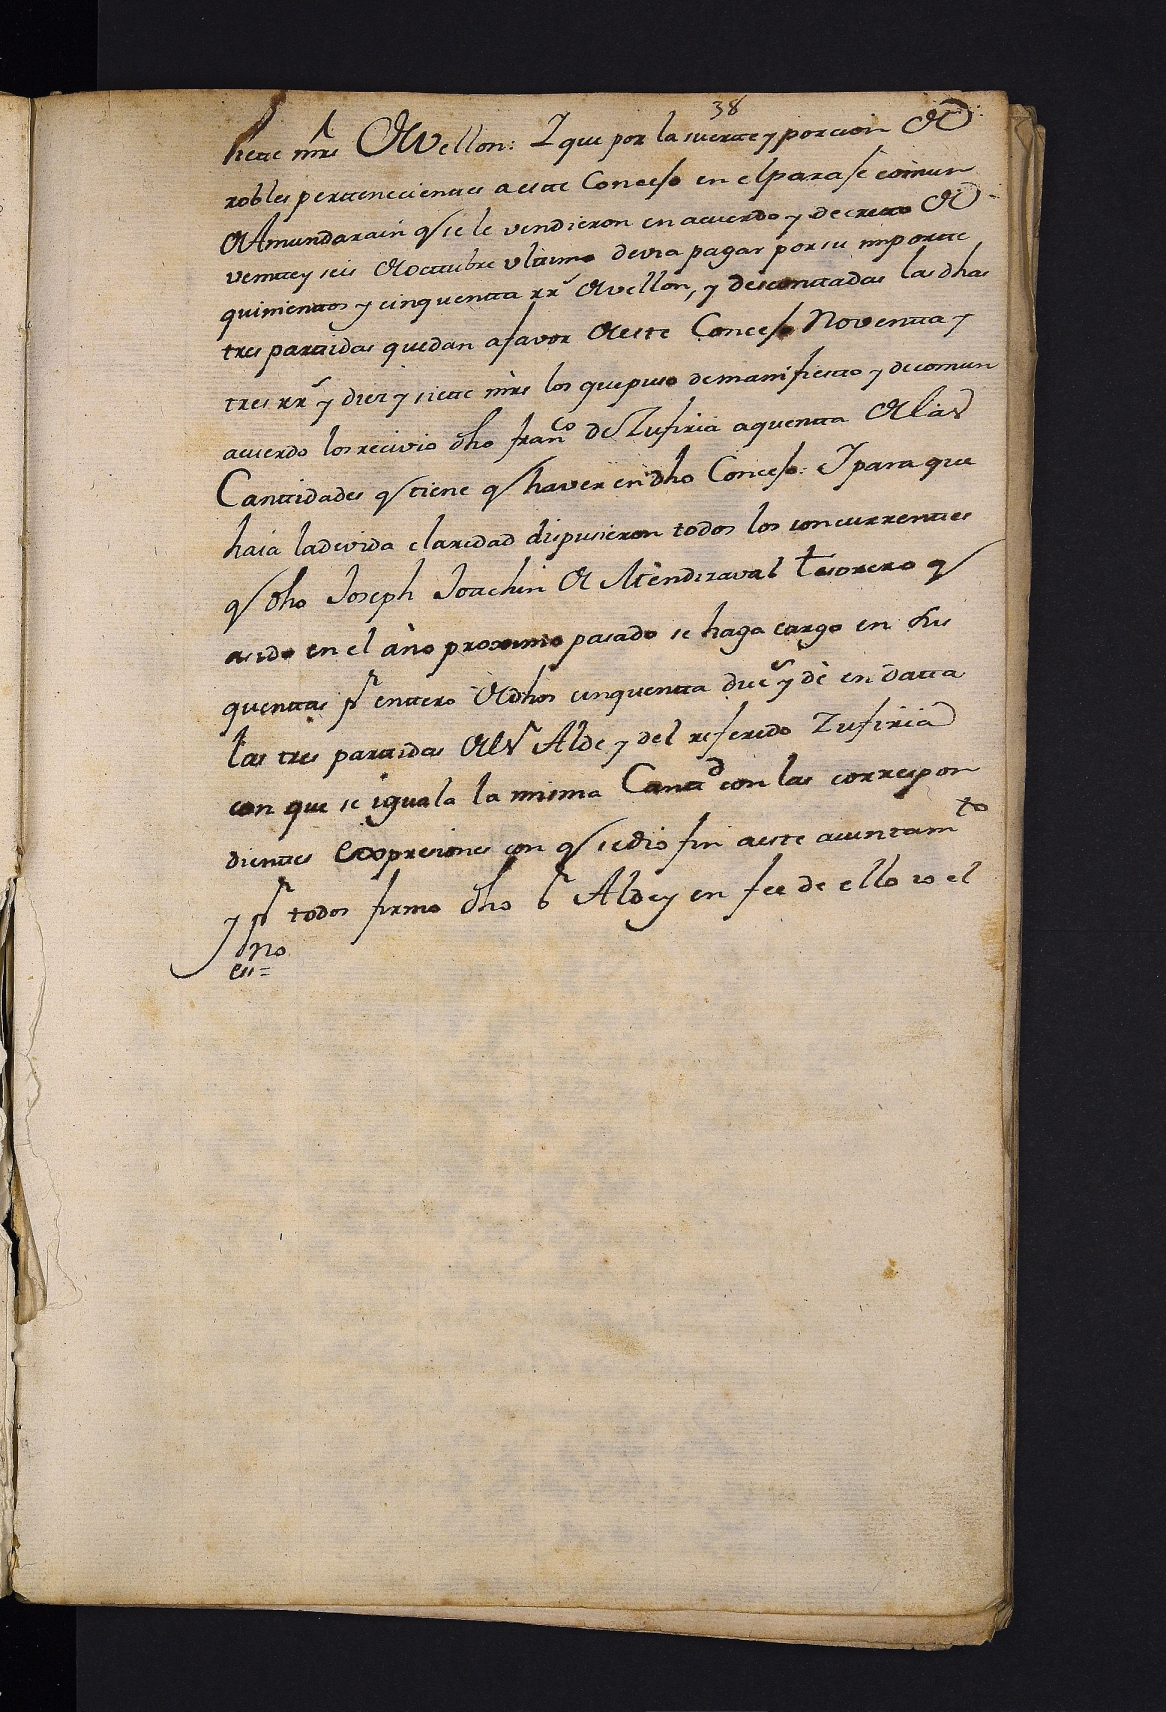 38
siette mrs de Vellon: Y que por la suerte y porcion de
robles pertenecientes a este Concejo en el paraje comun
de Amundarain q se le vendieron en acuerdo y decreto de
veintte y seis de octtubre ultimo devia pagar por su importte
quinientos y cinquentta rrs de vellon, y descontadas las dhas
tres partidas quedan a favor de este Concejo Noventta y
tres rrs y diez y siette mrs los que puso de manifiesto y de comun
acuerdo los recivio dho franco de Zufiria a quentta de las
Canttidades q tiene q haver en dho Concejo: Y para que
haia la devida claredad dispusieron todos los concurrenttes
q dho Joseph Joachin de Mendizaval tesorero q
a sido en el año proximo pasado se haga cargo en sus
quenttas pr enttero de dhos cinquentta ducs y dè en datta
las tres partidas del Sr Alde y del referido Zufiria
con que se iguala la misma Cantd con las correspon
dienttes expresiones con q se dio fin a este aiuntamto
y pr todos firmo dho Sr Alde y en fee de ello io el
sno
en=